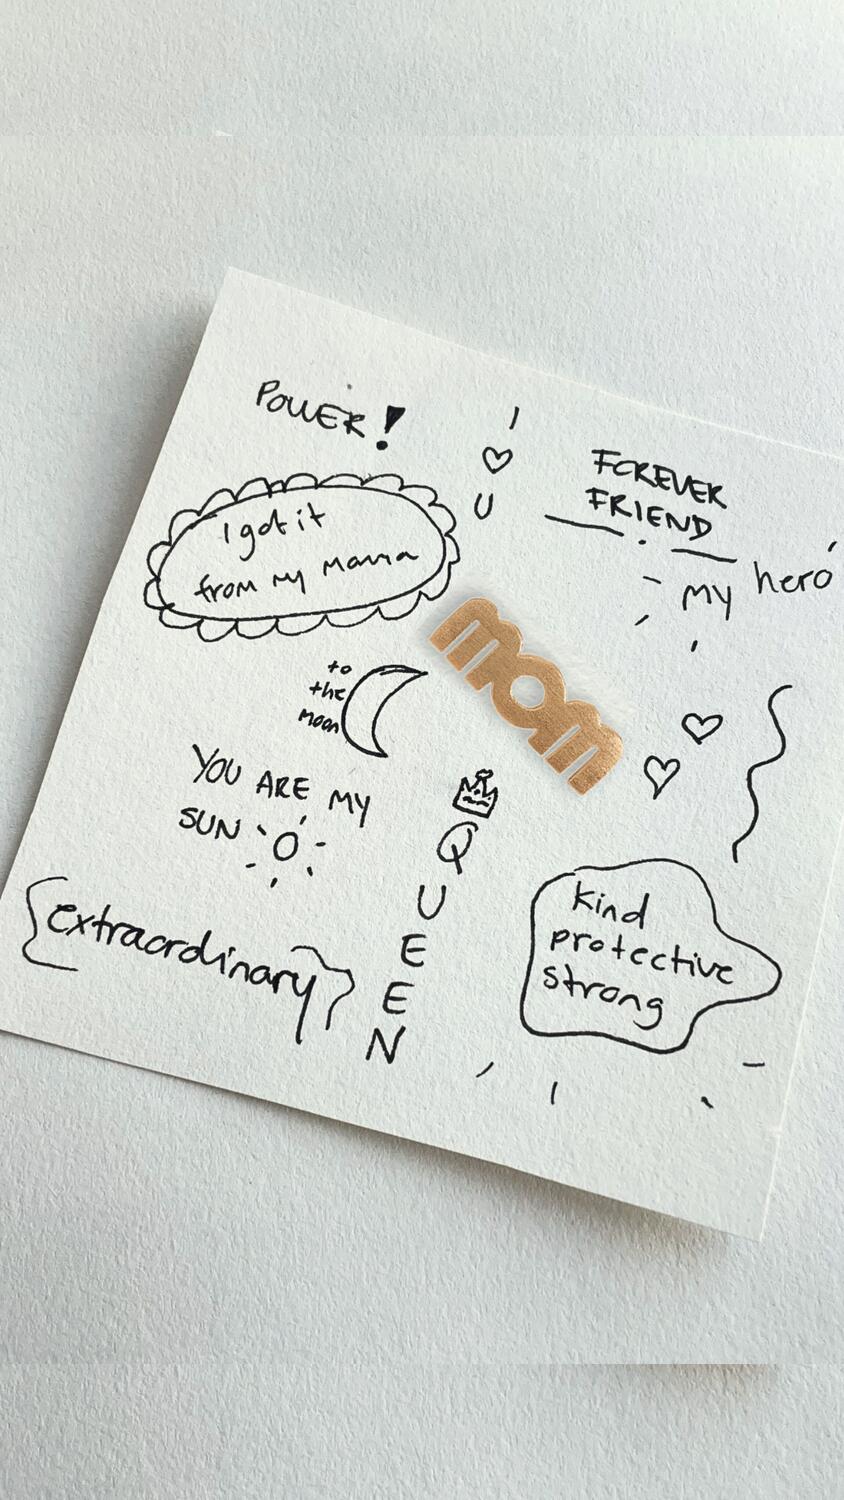 POWER!
I
♡
U
FOREVER
FRIEND
I got it
from my mama
my hero
mom
to
the
moon
YOU ARE MY
SUN
QUEEN
extraordinary
kind
protective
strong